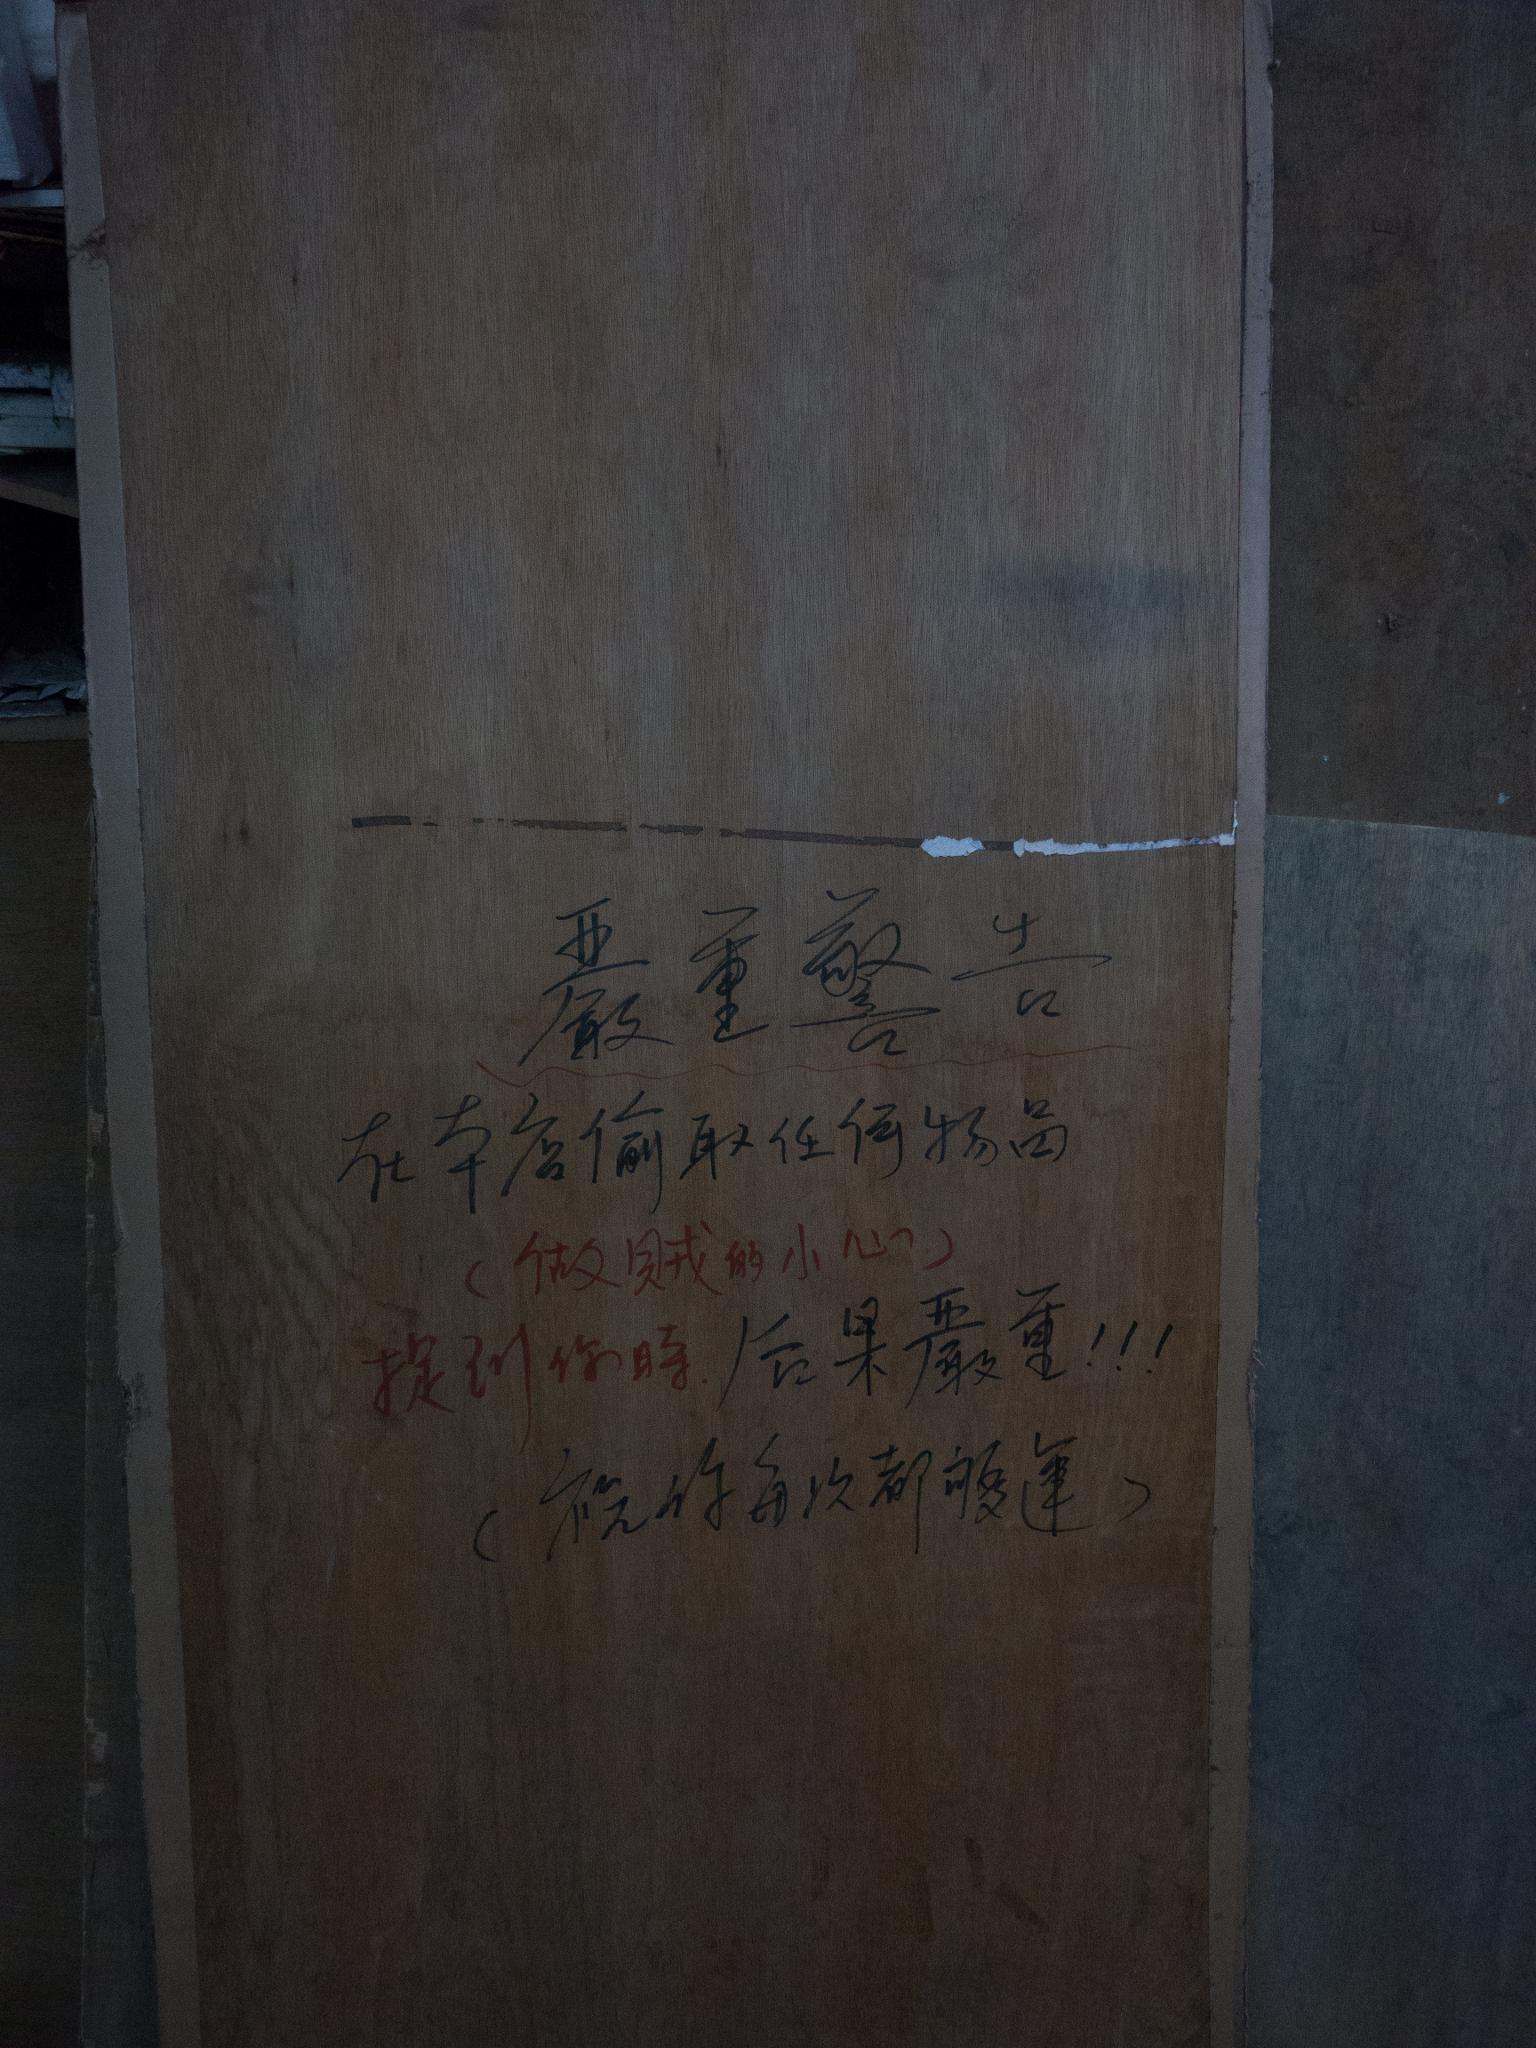 嚴重警告
在本店偷取任何物品
(做賊的小心)
捉到你時.后果嚴重!!!
(祝你每次都够運)